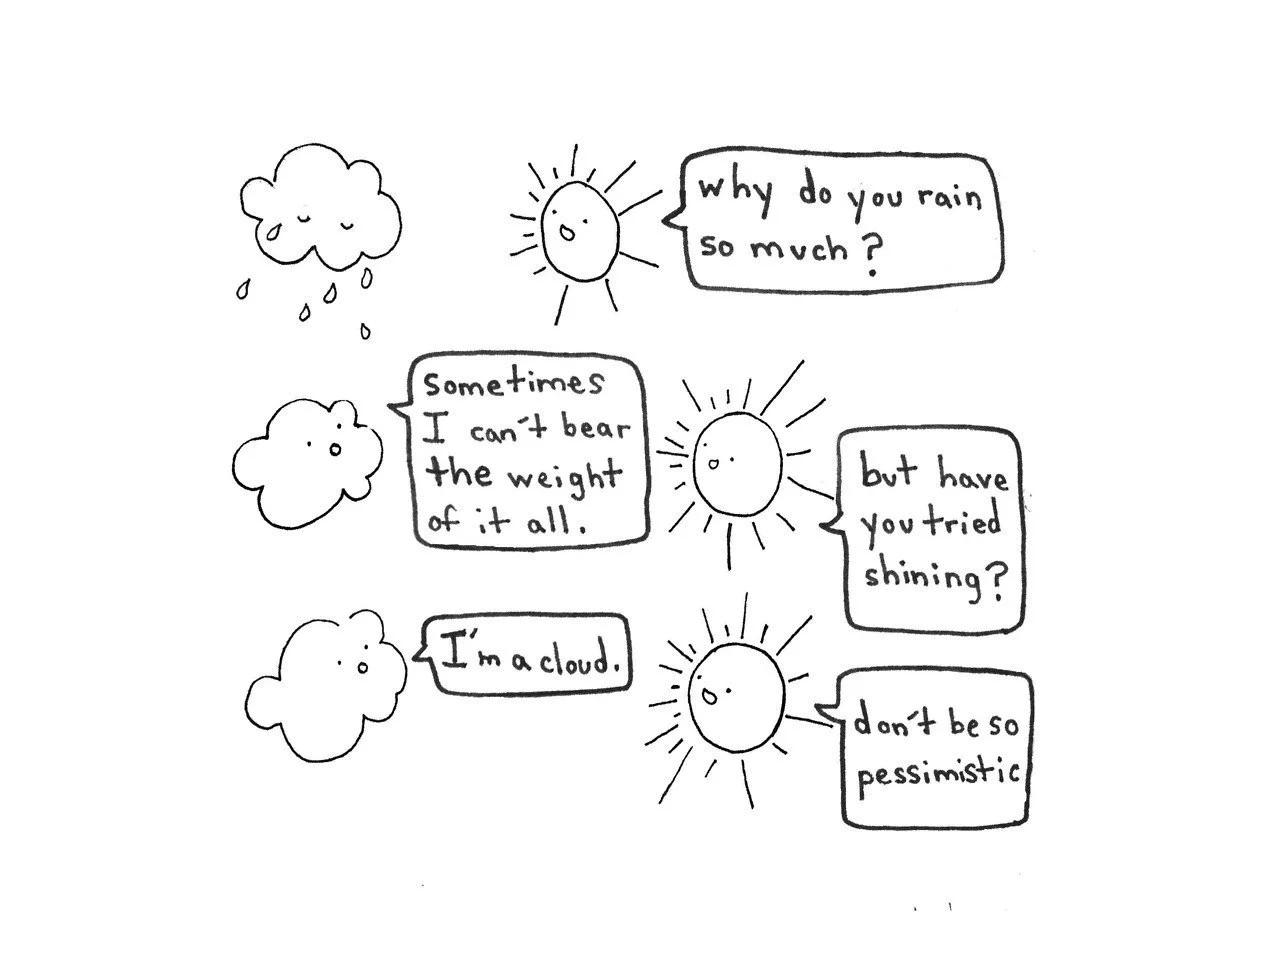 why do you rain
so much?
sometimes
I can't bear
the weight
of it all.
but have
you tried
shining?
I'm a cloud.
don't be so
pessimistic